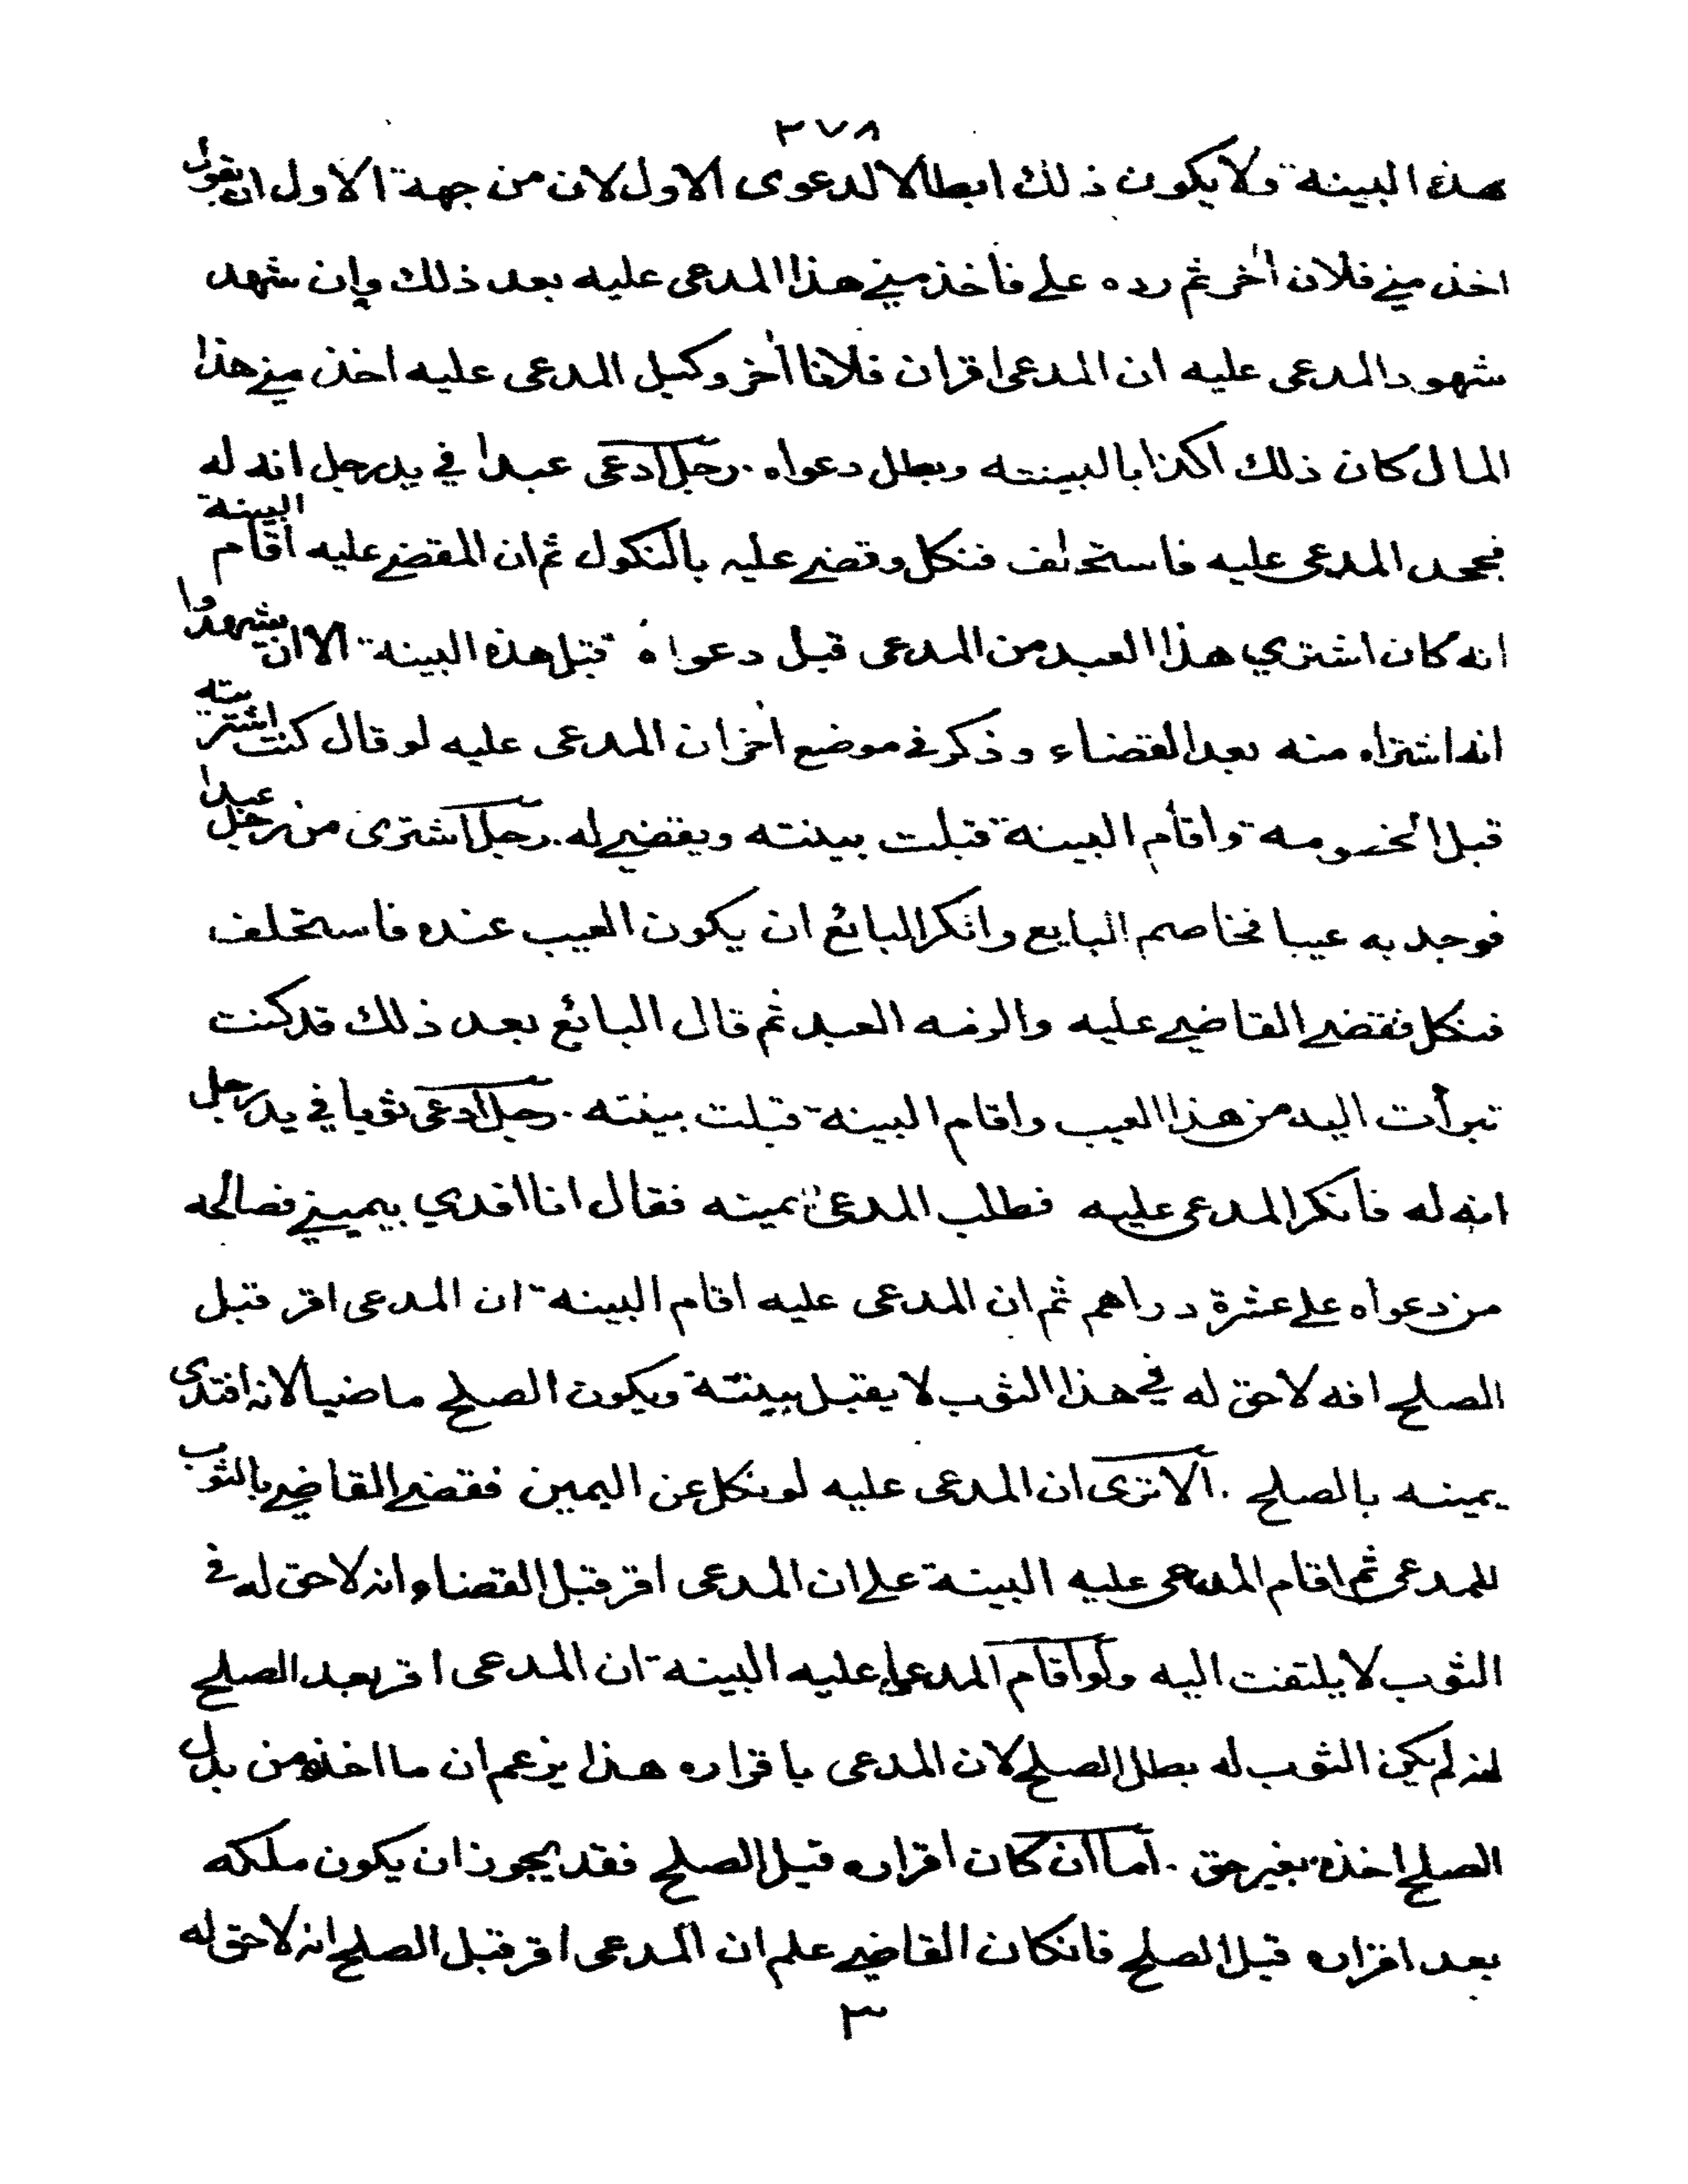 ٣٧٨
هذه البينة ولا يكون ذلك ابطالا لدعوى الاول لان من جهة الاول ان يقول
اخذ مني فلان اخر ثم رده علي فاخذ مني هذا المدعى عليه بعد ذلك وإن شهد
شهود المدعى عليه ان المدعى اقر ان فلانا اخر وكيل المدعى عليه اخذ مني هذا
المال كان ذلك اكذابا لبينته وبطل دعواه . رجل ادعى عبدا في يد رجل انه له
فجحد المدعى عليه فاستحلف فنكل وقضي عليه بالنكول ثم ان المقضي عليه اقام البينة
انه كان اشتري هذا العبد من المدعى قبل دعواه تقبل هذه البينة الا ان يشهدوا
انه اشتراه منه بعد القضاء وذكر في موضع اخر ان المدعى عليه لو قال كنت اشتريته
قبل الخصومة واقام البينة قبلت بينته ويقضي له . رجل اشترى من رجل عبدا
فوجد به عيبا فخاصم البايع وانكر البائع ان يكون العيب عنده فاستحلف
فنكل فقضي القاضي عليه والزمه العبد ثم قال البائع بعد ذلك قد كنت
تبرأت اليه من هذا العيب واقام البينة قبلت بينته . رجل ادعى ثوبا في يد رجل
انه له فانكر المدعى عليه فطلب المدعى يمينه فقال انا افدي بيميني فصالحه
من دعواه علي عشرة دراهم ثم ان المدعى عليه اقام البينة ان المدعى اقر قبل
الصلح انه لا حق له في هذا الثوب لا يقبل بينته ويكون الصلح ماضيا لانه افتدى
يمينه بالصلح . الا ترى ان المدعى عليه لو نكل عن اليمين فقضي القاضي بالثوب
للمدعى ثم اقام المدعى عليه البينة علي ان المدعى اقر قبل القضاء انه لا حق له في
الثوب لا يلتفت اليه ولو اقام المدعى عليه البينة ان المدعى اقر بعد الصلح
انه لم يكن الثوب له بطل الصلح لان المدعى باقراره هذا يزعم ان ما اخذه من بدل
الصلح اخذه بغير حق . اما ان كان اقراره قبل الصلح فقد يجوز ان يكون ملكه
بعد اقراره قبل الصلح فانكان القاضي علم ان المدعى اقر قبل الصلح انه لا حق له
٣